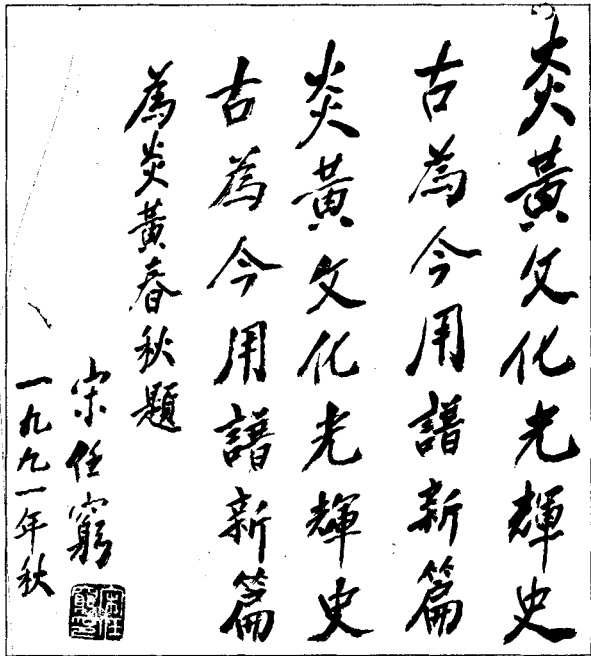 炎黃文化光輝史
古為今用譜新篇
炎黃文化光輝史
古為今用譜新篇
為炎黃春秋題
宋任窮
一九九一年秋